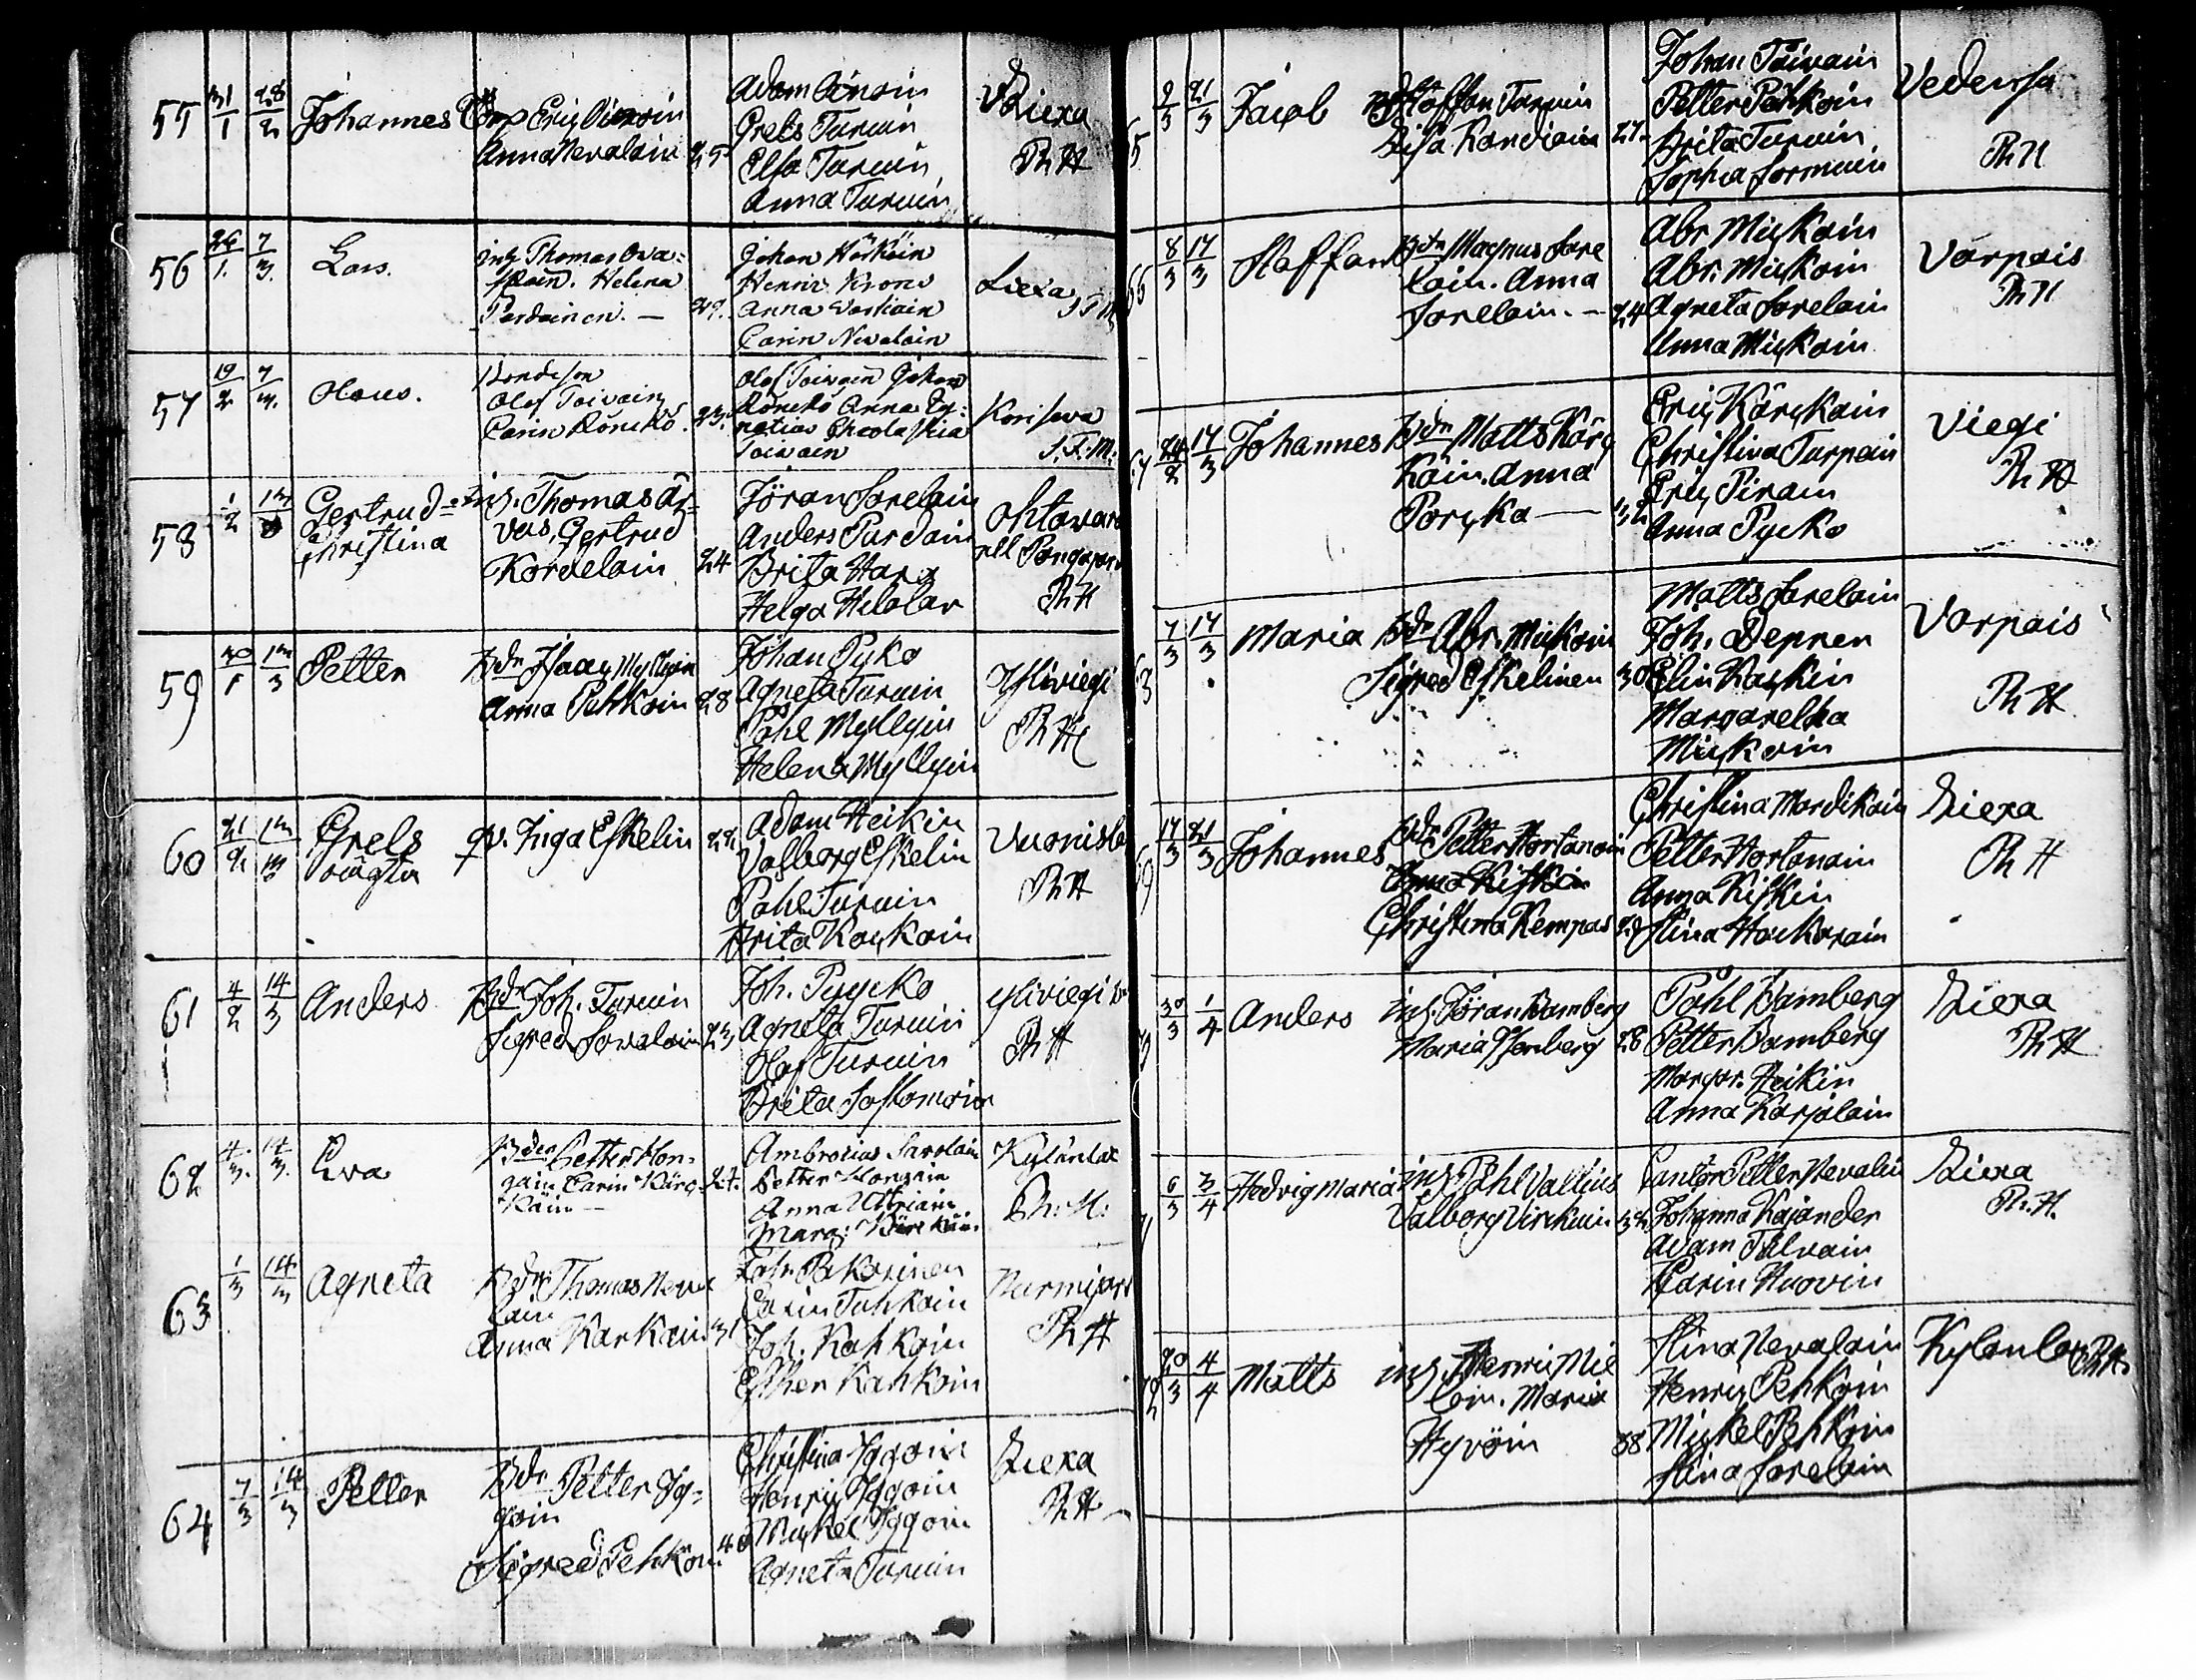 55 31/1 28/2 Johannes Eric
Anna Nevalain 25
Adam
Grels Turuin
Elsa Turuin
Anna Turuin
Liexa
Ph H
56 26/1 7/3 Lars.
inh Thomas Ova=
skain. Helena
Pardainen. — 29.
Johan Härköin
Henric Krone
Anna Vaskain
Carin Nevalain
Liexa
57 19/2 7/3. Olaus.
Bondeson
Olaf Toivain
Carin Rönckö. 23.
Olof Toivain Johan
Rönckö Anna Ig=
natias
Toivain
Koriseva
J. F. M.
58 1/2 13/3 Gertrud=
Christina
inh. Thomas Är=
vas, Gertrud
Kordelain 24
Jöran Sorelain
Anders Pardain
Brita Harx
Helga
Ohtavara
Ph H
59 30/1 13/3 Petter
Bdn Isaac Myllyin
Anna Pehkoin 28
Johan Pyko
Agneta Turuin
Påhl Myllyin
Helena Myllyin
Yliviegi
Ph H
60 21/2 13/3 Grels
oäagta
qv. Inga Eskelin 22
Adam Heikin
Valborg Eskelin
Påhl Turuin
Brita Kackoin
Vuonisla
Ph H
61 4/2 14/3 Anders
Bdn Joh. Turuin
Sigred Sovalain 23
Joh. Pyycko
Agneta Turuin
Olof Turuin
Brita Sostomoin
Yliviegi
Ph H
62 4/3. 14/3. Eva
Bden Petter Hon=
gain Carin Kärc=
käin — 27.
Ambrosius Savolain
Petter Hongain
Anna Uttriain
Marg: Kärckäin
Kylänlax
Ph: H:
63 1/3 14/3 Agneta
Bdn Thomas Neva
lain
Anna Karkain 31
Pakarinen
Carin Tuhkoin
Joh. Kahkoin
Esther Kahkoin
Nurmijärvi
Ph H
64 7/3 14/3 Petter
Bdn Petter Ig=
goin
Sigred Pehkoin 40
Christina Iggoin
Henric Iggoin
Mickel Iggoin
Agneta Turuin
Liexa
Ph H
65 2/3 21/3 Jacob
Staffan Turuin
Lisa Kondiain 27
Johan Toivain
Petter Pehkoin
Brita Turuin
Sophia Sormuin
Viedensu
Ph H
66 8/3 17/3 Staffan
Bdn Magnus Sore
lain. Anna
Sorelain. — 24
Abr. Mickoin
Abr. Mickoin
Agneta Sorelain
Anna Mickoin
Varpais
Ph H
67 24/2 17/3 Johannes
Bdn Matts Kärc
käin. Anna
Porcka — 32
Eric Kärckäin
Christina Turpein
Eric Pirain
Anna Pycko
Viegi
Ph H
68 7/3 17/3 Maria
Bdn Abr. Mickoin
Sigred Eskelinen 30
Matts Sorelain
Joh. Depner
Elin Kackin
Margaretha
Mickoin
Varpais
Ph H
69 17/3 21/3 Johannes
Bdn Petter Hortanain
Christina Kempas 28
Christina Mordikain
Petter Hortanain
Anna Kiskin
Stina Hackarain
Liexa
Ph H
70 30/3 1/4 Anders
inh. Jöran Bamberg
Maria Isenberg 28
Påhl Bamberg
Petter Bamberg
Margar. Heikin
Anna Karjalain
Liexa
Ph H
71 6/3 3/4 Hedvig Maria
inh Påhl Vallius
Valborg Virckuin 32
Cantor Petter Nevalin
Johanna Kajander
Adam Tålvain
Karin Huovin
Liexa
Ph. H.
72 20/3 4/4 Matts
inh. Henric Mie
loin. Maria
Hyvöin 38
Stina Nevalain
Henric Pehkoin
Mickel Pehkoin
Stina Sorelain
Kylänlax Ph H